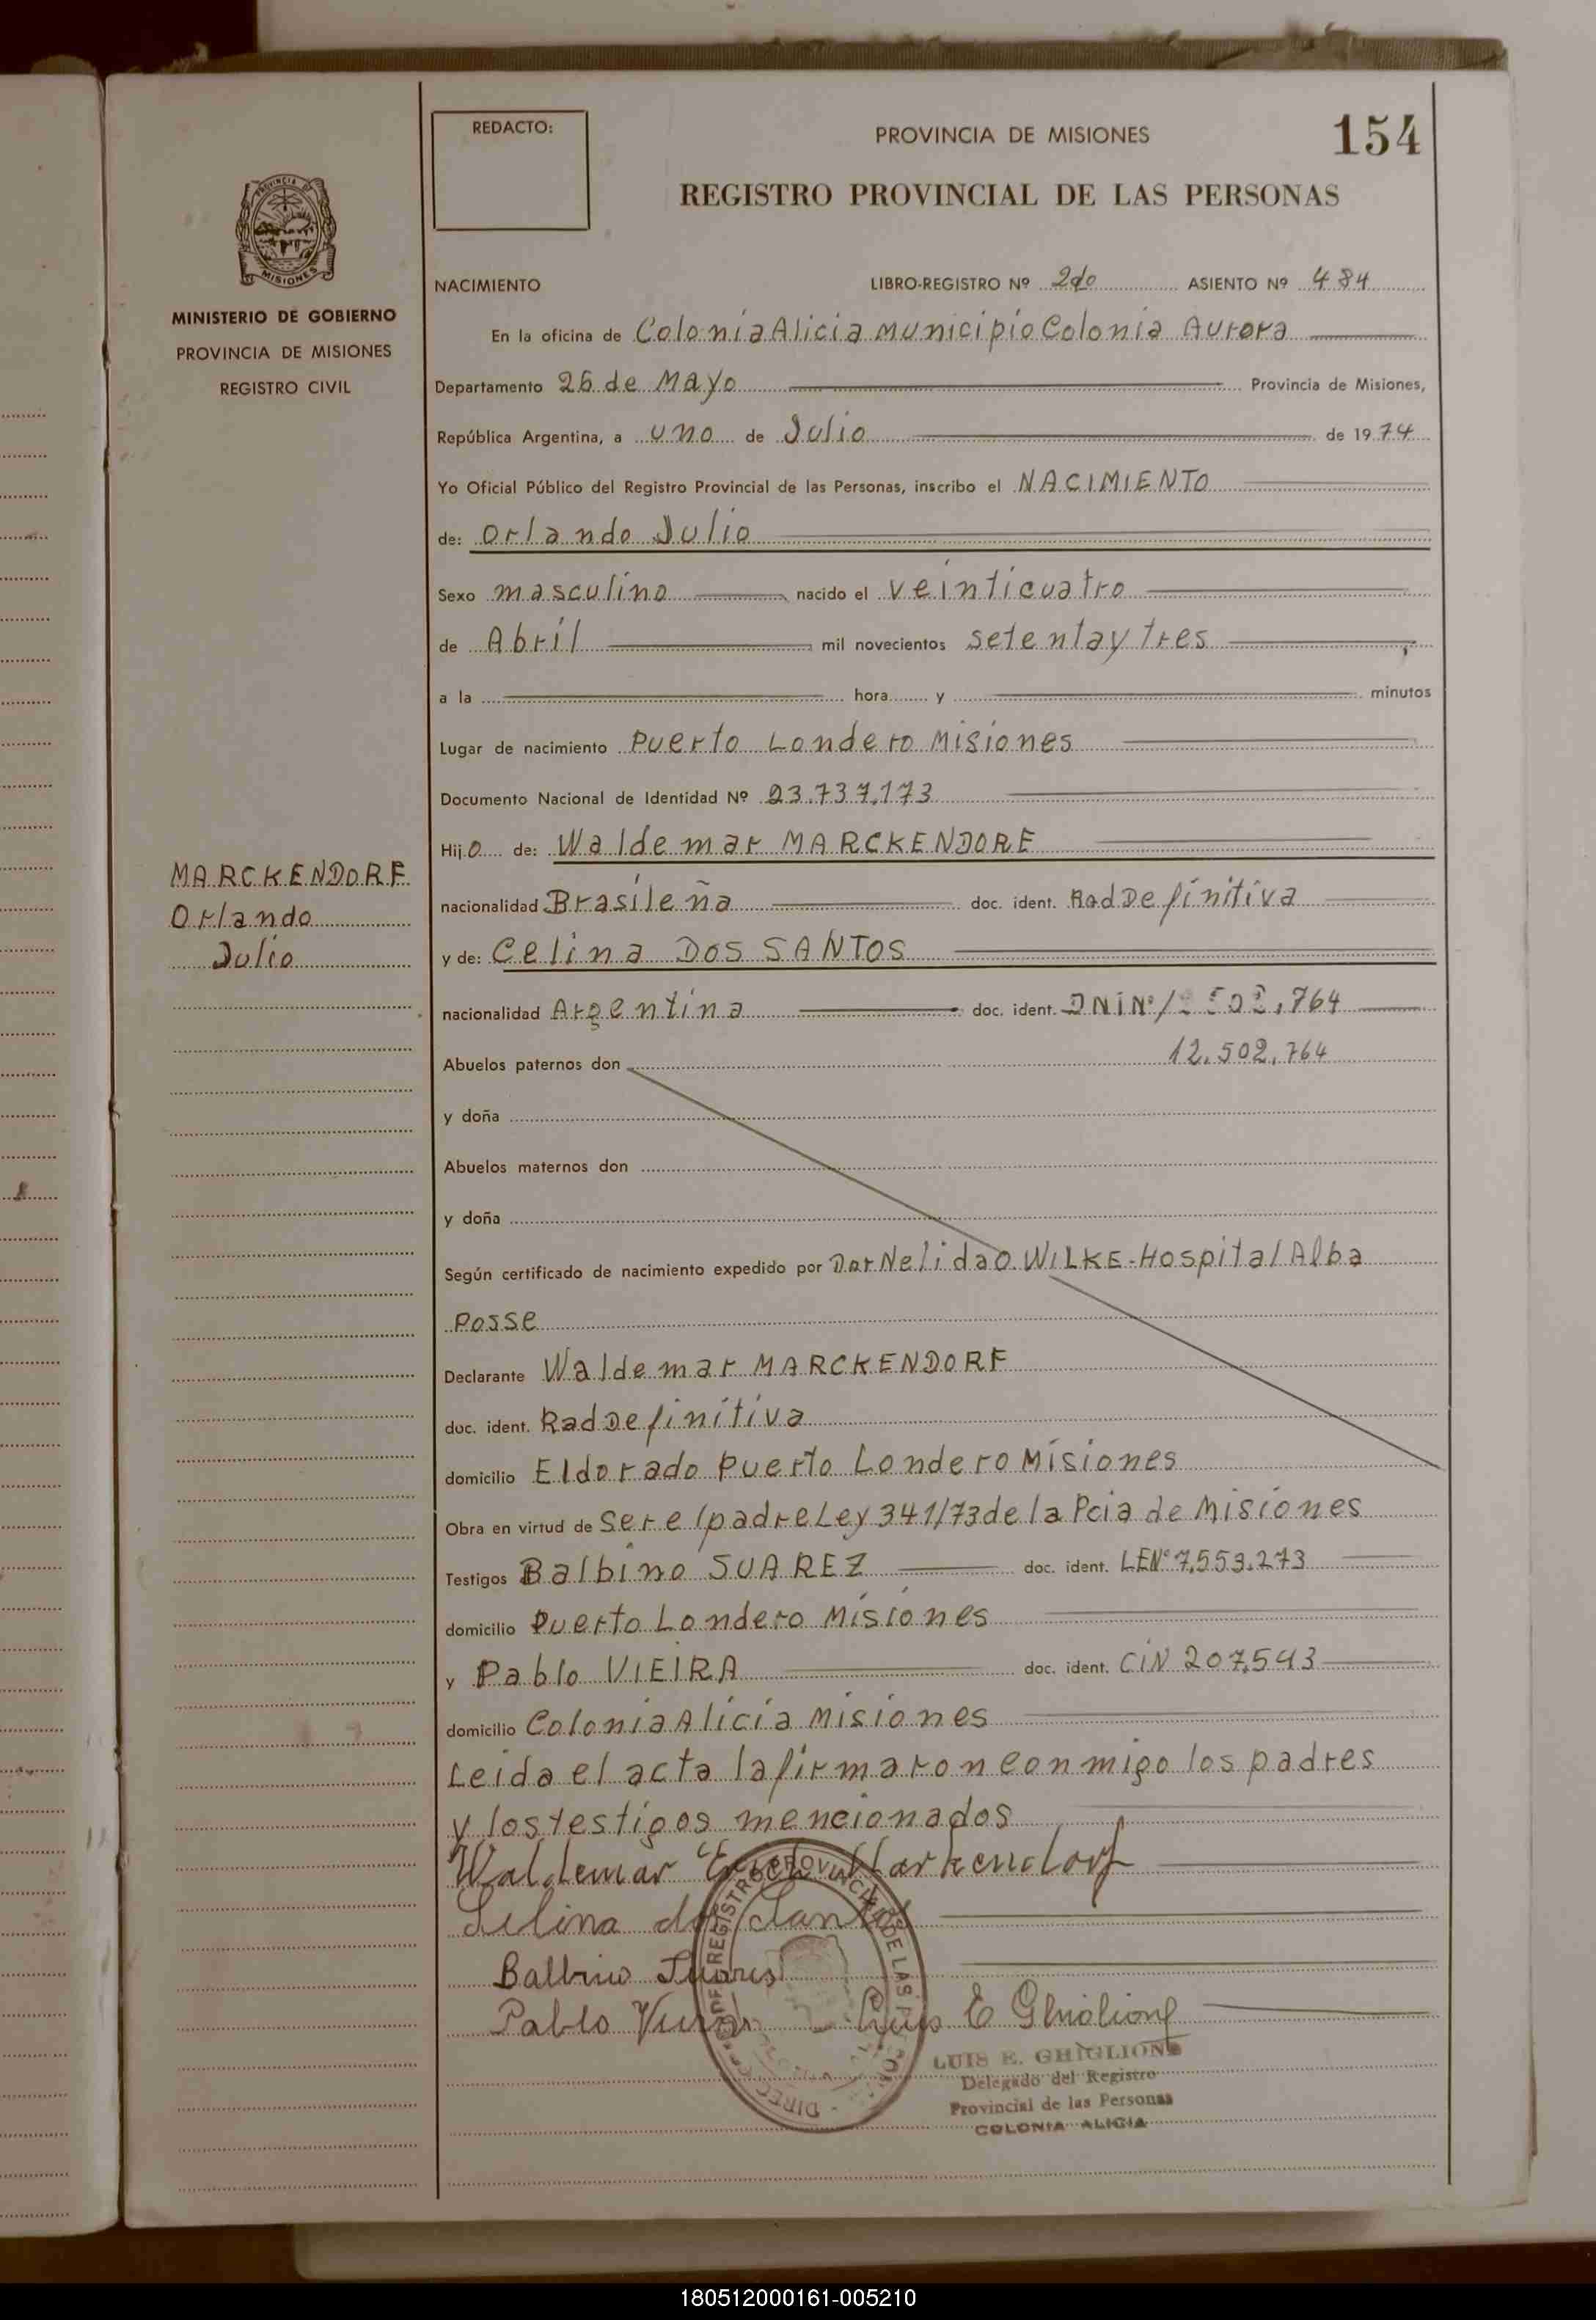 REDACTO:
PROVINCIA DE MISIONES
154
REGISTRO PROVINCIAL DE LAS PERSONAS
MISIONES
MINISTERIO DE GOBIERNO
PROVINCIA DE MISIONES
REGISTRO CIVIL
NACIMIENTO LIBRO-REGISTRO Nº 2do ASIENTO Nº 484
En la oficina de Colonia Alicia Municipio Colonia Aurora
Departamento 25 de Mayo Provincia de Misiones,
República Argentina, a uno de Julio de 1974
Yo Oficial Público del Registro Provincial de las Personas, inscribo el NACIMIENTO
de: Orlando Julio
Sexo masculino nacido el veinticuatro
de Abril mil novecientos setentaytres
a la hora y minutos
Lugar de nacimiento Puerto Londero Misiones
Documento Nacional de Identidad Nº 23.737.173
Hijo de: Waldemar MARCKENDORF
MARCKENDORF
Orlando
Julio
nacionalidad Brasileña doc. ident. Rad Definitiva
y de: Celina DOS SANTOS
nacionalidad Argentina doc. ident. DNINº 12.502.764
12.502.764
Abuelos paternos don
y doña
Abuelos maternos don
y doña
Según certificado de nacimiento expedido por Dor Nelida O. WILKE-Hospital Alba
Posse
Declarante Waldemar MARCKENDORF
doc. ident. Rad Definitiva
domicilio Eldorado Puerto Londero Misiones
Obra en virtud de Ser el padre Ley 341/73 de la Pcia de Misiones
Testigos Balbino SUAREZ doc. ident. LENº 7.553.273
domicilio Puerto Londero Misiones
y Pablo VIEIRA doc. ident. CIN 207.543
domicilio Colonia Alicia Misiones
Leida el acta la firmaron conmigo los padres
y los testigos mencionados
Waldemar Markendorf
Selina dos Santos
Balbino Suares
Pablo Luis E Ghiglione
LUIS E. GHIGLIONE
Delegado del Registro
Provincial de las Personas
COLONIA ALICIA
180512000161-005210